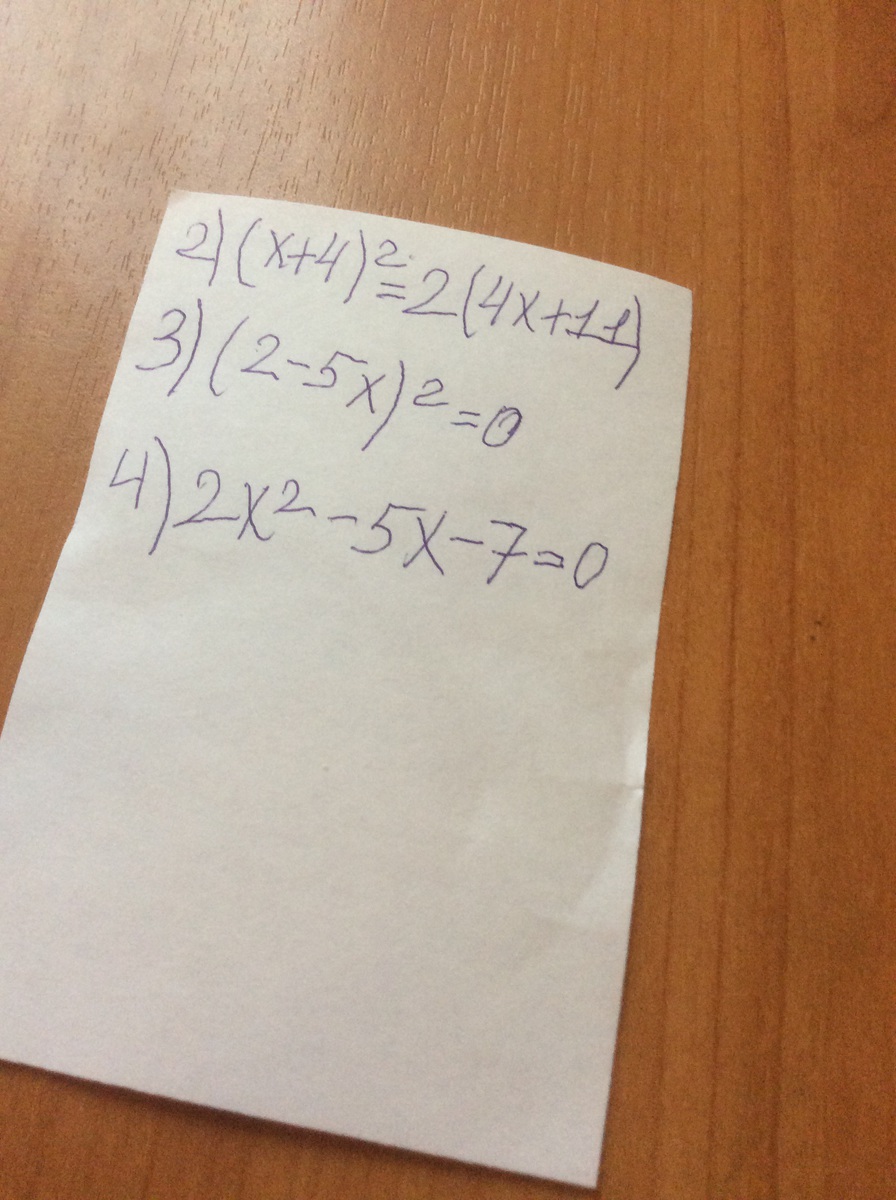 2) (x+4)² = 2(4x+11)
3) (2-5x)² = 0
4) 2x² - 5x - 7 = 0